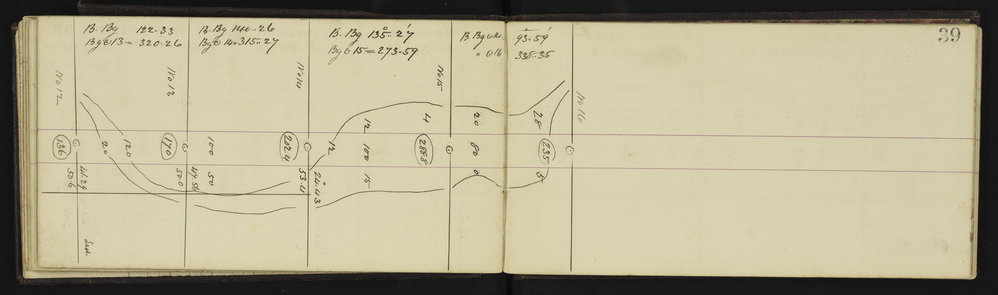 39
B. Bg 122.33
Bg ⊙ 13 = 320.26
B. Bg 140..26
Bg ⊙ 14 315..27
B. Bg 135..27
Bg ⊙ 15 = 273.59
B Bg ⊙ 14 93..59
" ⊙ 16 335..35
No 12
No 12
No 14
No 15
No 16
136
170
202.4
235
20
120
100
12
12
100
4
20
80
28
50.6
41.29
50.0
50
53.11
24.43
15
0
5